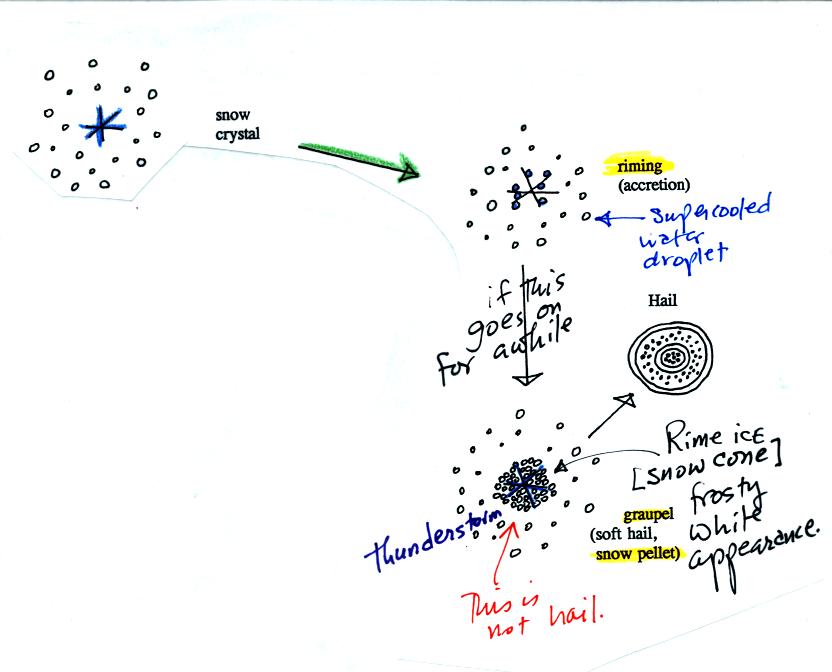 snow
crystal
riming
(accretion)
supercooled
water
droplet
if this
goes on
for awhile
Hail
Rime ice
[snow cone]
frosty
white
appearance.
graupel
(soft hail,
snow pellet)
thunderstorm
This is
not hail.